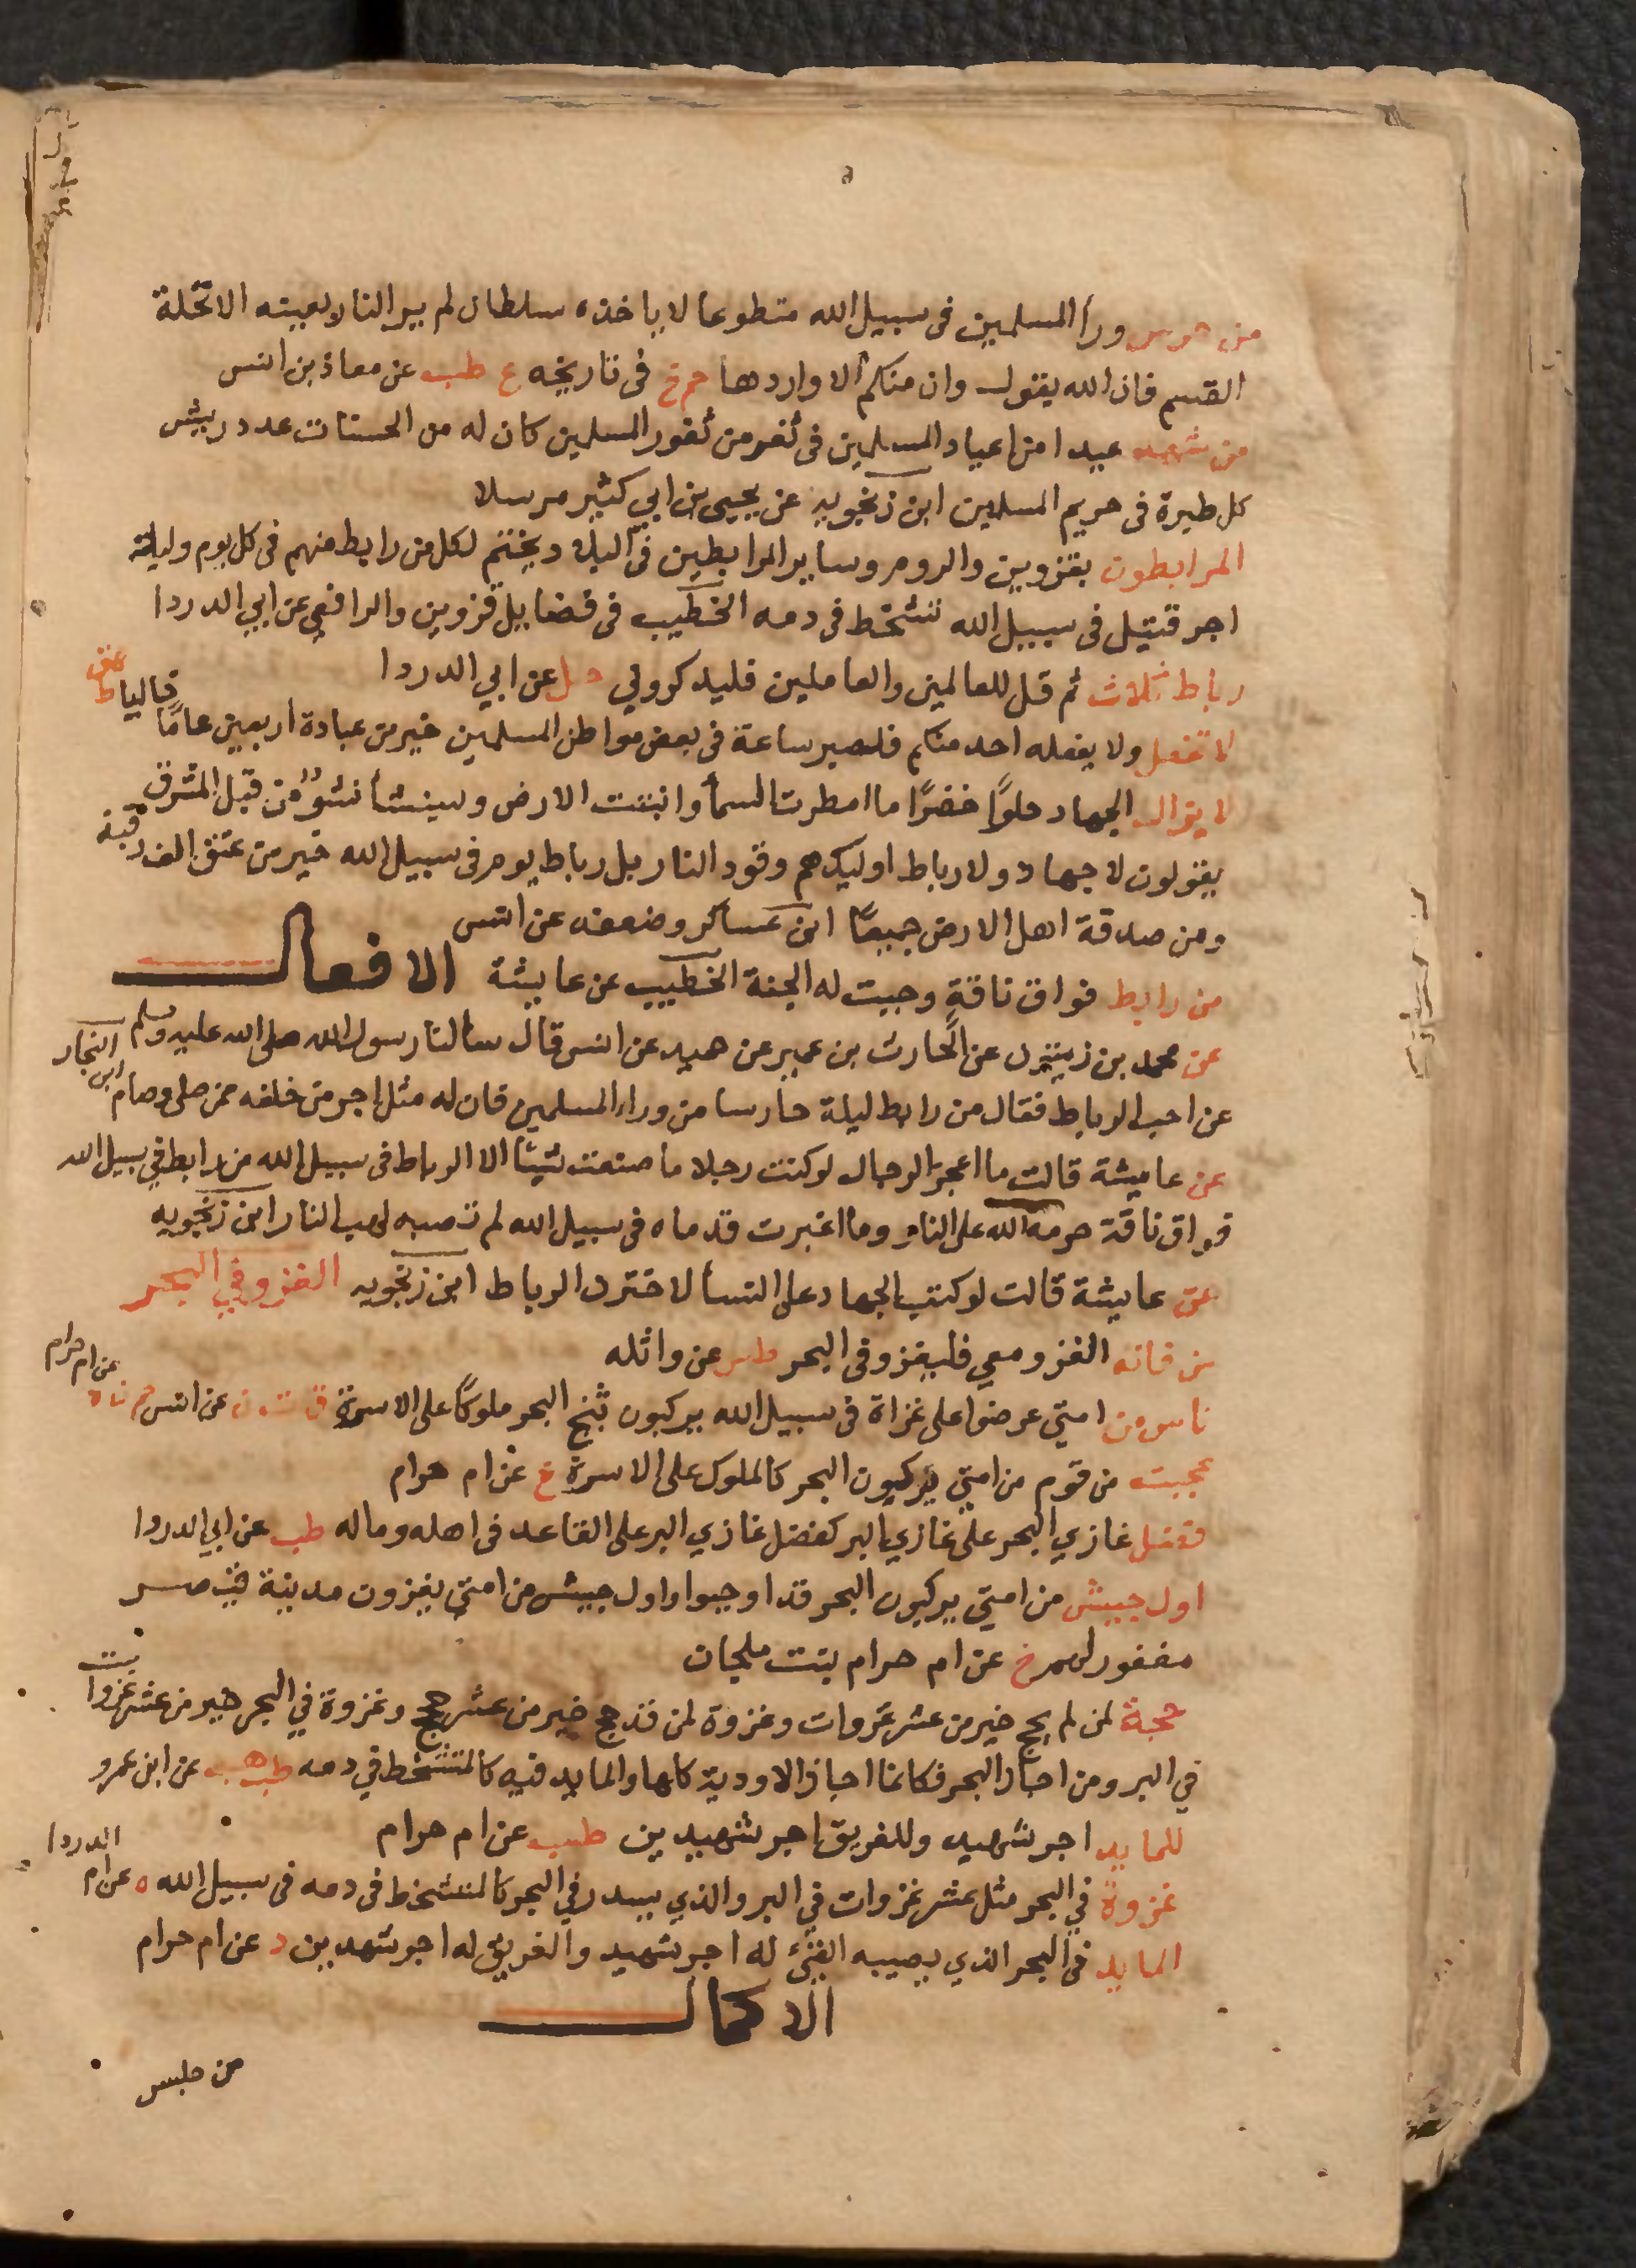 من حرس ورأ المسلمين فى سبيل الله متطوعا لا ياخذه سلطان لم ير النار بعينه الا تحلة
القسم فان الله يقول وان منكم الا واردها حم خ فى تاريخه ع طب عن معاذ بن انس
من شهد عيدا من اعياد المسلمين فى ثغر من ثغور المسلمين كان له من الحسنات عدد ريش
كل طيرة فى حريم المسلمين ابن زنجويه عن يحيى بن ابي كثير مرسلا
المرابطون بقزوين والروم وساير المرابطين فى البلاد ويختم لكل من رابط منهم فى كل يوم وليلة
اجر قتيل فى سبيل الله تتشحط فى دمه الخطيب فى فضايل قزوين والرافعي عن ابي الدردا
رباط ثلاث ثم قل للعالمين والعاملين فليدكروني عن ابي الدردا
لا تفعل ولا يفعله احد منكم فلصبر ساعة فى بعض مواطن المسلمين خير من عبادة اربعين عامًا
لا يزال الجهاد حلوًا خضرًا ما امطرت السمأ وانبتت الارض وسينشأ نشؤ من قبل المشرق
يقولون لا جهاد ولا رباط اوليك هم وقود النار بل رباط يوم فى سبيل الله خير من عتق الف رقبة
ومن صدقة اهل الارض جميعًا ابن عساكر وضعفه عن انس
من رابط فواق ناقة وجبت له الجنة الخطيب عن عايشة الافعال
عن محمد بن زنبور عن الحارث بن عمير عن حميد عن انس قال سالنا رسول الله صلى الله عليه وسلم
عن احب الرباط فقال من رابط ليلة حارسا من وراء المسلمين فان له مثل اجر من خلفه ممن صلى وصام ابن النجار
عن عايشة قالت ما اعجز الرجال لو كنت رجلا ما صنعت شيئًا الا الرباط فى سبيل الله من رابط في سبيل الله
فواق ناقة حرمه الله على النار وما اغبرت قدماه فى سبيل الله لم تصبه لهب النار ابن زنجويه
عن عايشة قالت لو كتب الجهاد على النسأ لاخترن الرباط ابن زنجويه الغزو في البحر
من فاته الغزو معي فليغزو فى البحر طس عن واثله
ناس من امتي عرضوا على غزاة فى سبيل الله يركبون ثبج البحر ملوكًا على الاسرة ق ت ن عن انس حم ن ه عن ام حرام
عجبت من قوم من امتي يركبون البحر كالملوك على الاسرة خ عن ام حرام
فضل غازي البحر على غازي البر كفضل غازي البر على القاعد فى اهله وماله طب عن ابي الدردا
اول جيش من امتي يركبون البحر قد اوجبوا واول جيش من امتي يغزون مدينة قيصر
مغفور لهم خ عن ام حرام بنت ملحان
حجة لمن لم يحج خير من عشر غزوات وغزوة لمن قد حج خير من عشر حجج وغزوة في البحر خير من عشر غزوات
في البر ومن اجاز البحر فكانما اجاز الاودية كلها والمايد فيه كالمتشحط في دمه طب هب عن ابن عمرو
للمايد اجر شهيد وللغريق اجر شهيدين طب عن ام حرام
غزوة في البحر مثل عشر غزوات في البر والذي يسدر في البحر كالمتشحط فى دمه فى سبيل الله ه عن ام الدردا
المايد فى البحر الذي يصيبه القئ له اجر شهيد والغريق له اجر شهيدين د عن ام حرام
الاكمال
من جلس